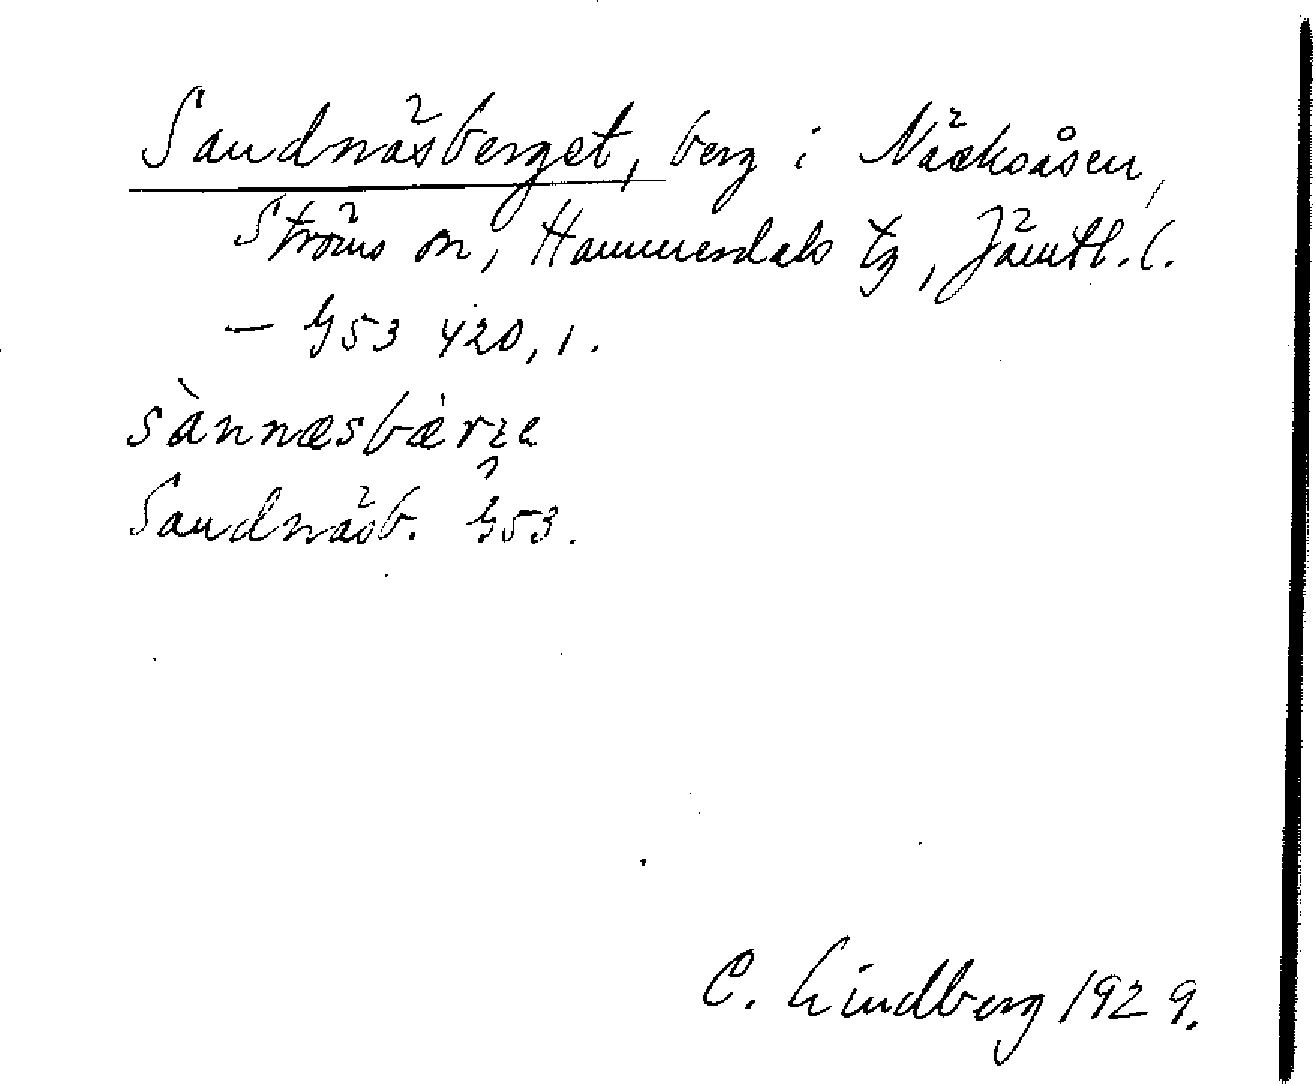 Sandnäsberget, berg i Näcksåsen,
Ströms sn, Hammerdals tg, Jämtl. l.
— G53 420, 1.
sànnæsbæ̀rʒe
Sandnäsb. G53.
C. Lindberg 1929.